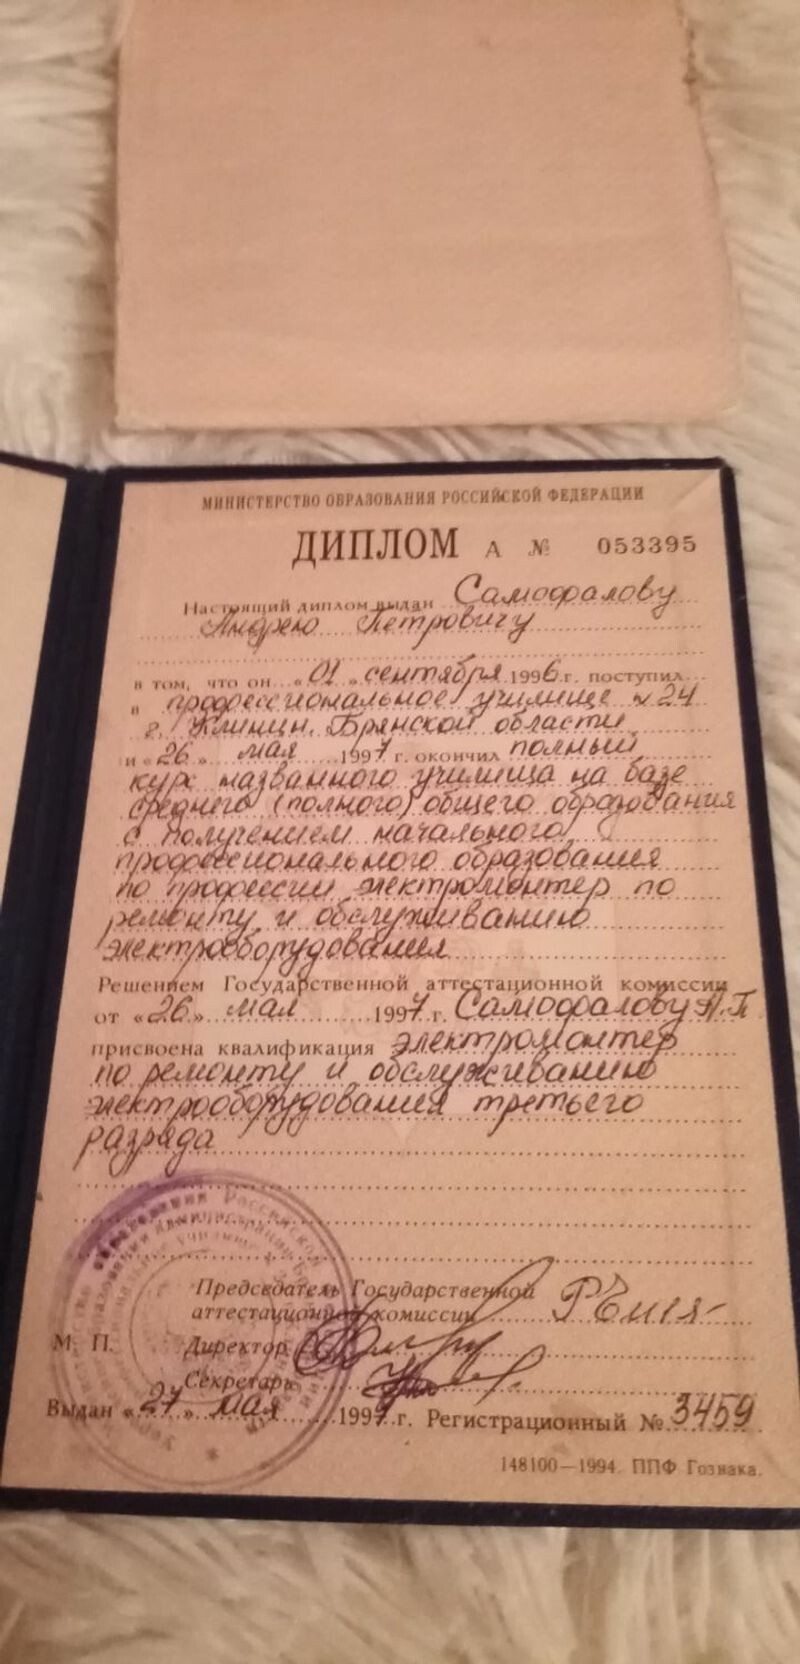 МИНИСТЕРСТВО ОБРАЗОВАНИЯ РОССИЙСКОЙ ФЕДЕРАЦИИ
ДИПЛОМ А № 053395
Настоящий диплом выдан Самофалову
Андрею Петровичу
в том, что он «01» сентября 1996 г. поступил
в профессиональное училище № 24
г. Клинцы, Брянской области
и «26» мая 1997 г. окончил полный
курс названного училища на базе
среднего (полного) общего образования
с получением начального
профессионального образования
по профессии электромонтер по
ремонту и обслуживанию
электрооборудования
Решением Государственной аттестационной комиссии
от «26» мая 1997 г. Самофалову А.П
присвоена квалификация электромонтер
по ремонту и обслуживанию
электрооборудования третьего
разряда
Председатель Государственной
аттестационной комиссии
М. П. Директор
Секретарь
Выдан «27» мая 1997 г. Регистрационный № 3459
148100—1994. ППФ Гознака.